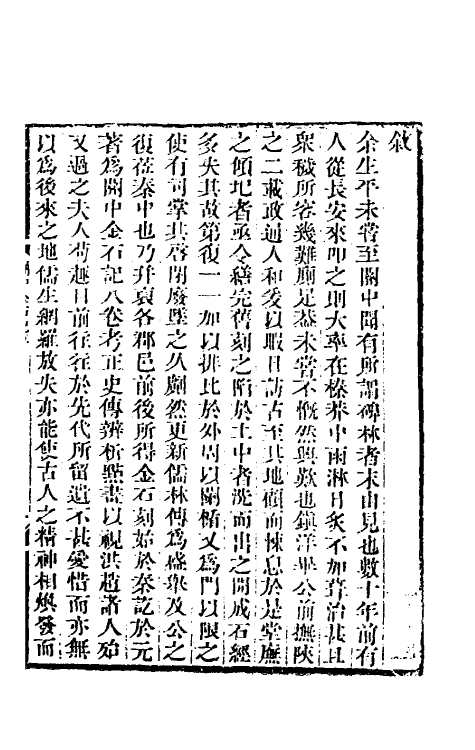 敘
余生平未嘗至關中聞有所謂碑林者末由見也數十年前有
人從長安來叩之則大率在榛莽中雨淋日炙不加葺治甚且
眾穢所容幾難廁足蓋未嘗不慨然興歎也鎮洋畢公前撫陝
之二載政通人和爰以暇日訪古至其地顧而悚息於是堂廡
之傾圮者亟令繕完舊刻之陷於土中者洗而出之開成石經
多失其故第復一一加以排比於外周以闌楯又為門以限之
使有司掌其啓閉廢墜之久廟然更新儒林傳為盛舉及公之
復莅秦中也乃并裒各郡邑前後所得金石刻始於秦訖於元
著為關中金石記八卷考正史傳辨析點畫以視洪趙諸人殆
又過之夫人苟趣目前往往於先代所留遺不甚愛惜而亦無
以為後來之地儒生網羅放失亦能使古人之精神相煥發而